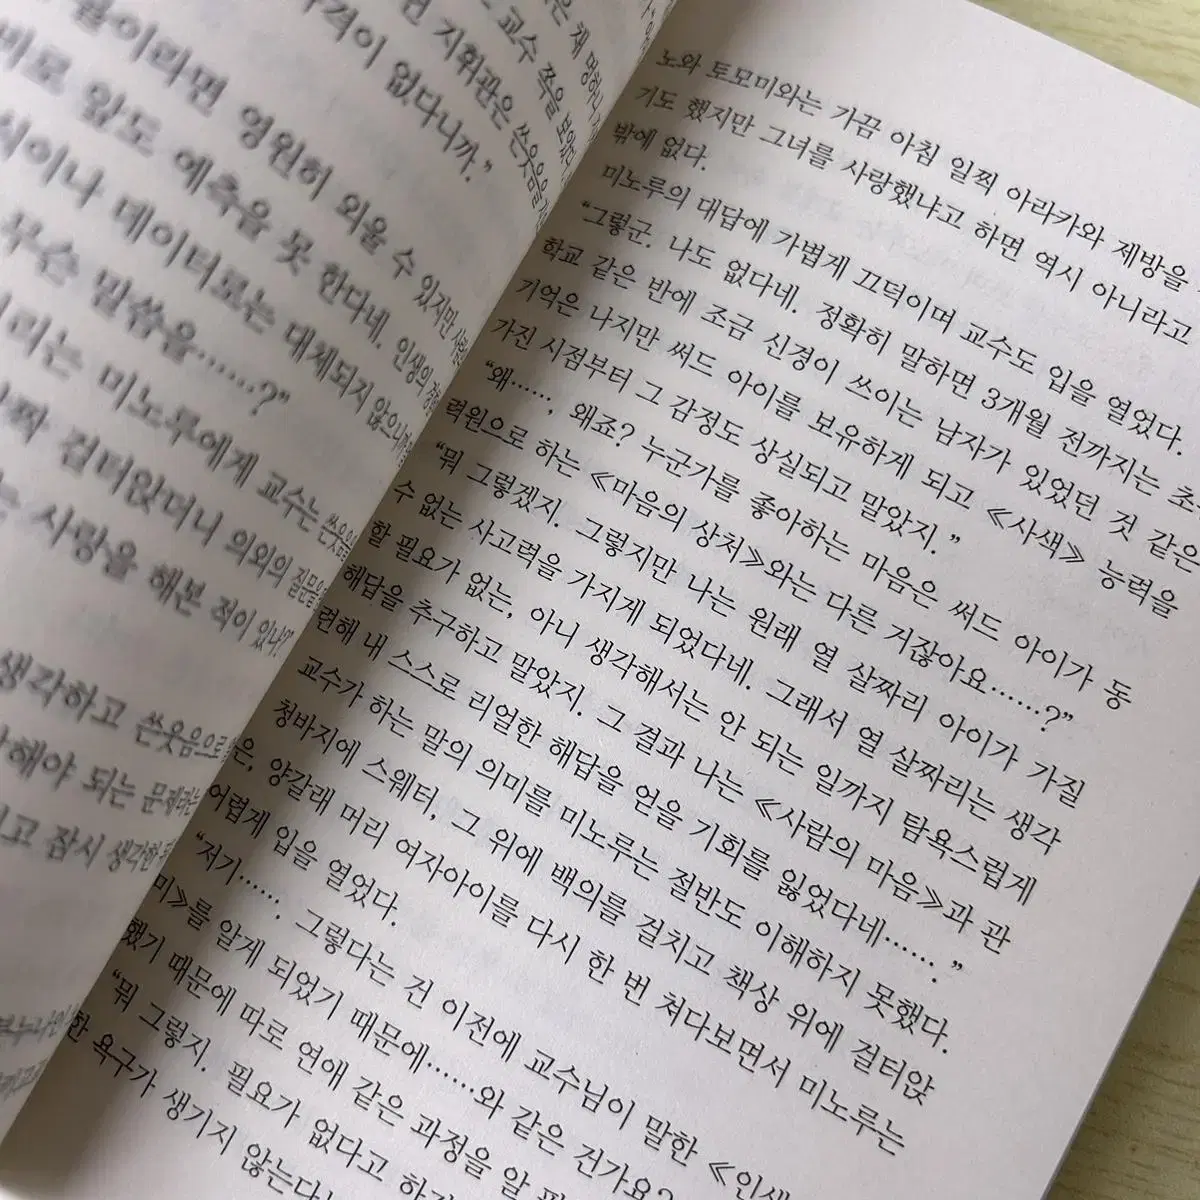 은 채 멍하니
교수 쪽을 보았다.
면 지휘관은 쓴웃음을
격이 없다니까.”
이라면 영원히 외울 수 있지만 사람
미로 앞도 예측을 못 한다네. 인생의
식이나 데이터로는 대체되지 않으니까
무슨 말씀을……?”
리는 미노루에게 교수는 쓴웃음
짝 걸터앉더니 의외의 질문을
는 사랑을 해본 적이 있나?”
생각하고 쓴웃음으로
해야 되는 문제라는
고 잠시 생각한
노와 토모미와는 가끔 아침 일찍 아라카와 제방을
기도 했지만 그녀를 사랑했냐고 하면 역시 아니라고
밖에 없다.
미노루의 대답에 가볍게 끄덕이며 교수도 입을 열었다.
“그렇군. 나도 없다네. 정확히 말하면 3개월 전까지는 초
학교 같은 반에 조금 신경이 쓰이는 남자가 있었던 것 같은
기억은 나지만 써드 아이를 보유하게 되고 ≪사색≫ 능력을
가진 시점부터 그 감정도 상실되고 말았지.”
“왜……, 왜죠? 누군가를 좋아하는 마음은 써드 아이가 동
력원으로 하는 ≪마음의 상처≫와는 다른 거잖아요……?”
“뭐 그렇겠지. 그렇지만 나는 원래 열 살짜리 아이가 가질
수 없는 사고력을 가지게 되었다네. 그래서 열 살짜리는 생각
할 필요가 없는, 아니 생각해서는 안 되는 일까지 탐욕스럽게
해답을 추구하고 말았지. 그 결과 나는 ≪사람의 마음≫과 관
련해 내 스스로 리얼한 해답을 얻을 기회를 잃었다네…….”
교수가 하는 말의 의미를 미노루는 절반도 이해하지 못했다.
청바지에 스웨터, 그 위에 백의를 걸치고 책상 위에 걸터앉
은, 양갈래 머리 여자아이를 다시 한 번 쳐다보면서 미노루는
어렵게 입을 열었다.
“저기……. 그렇다는 건 이전에 교수님이 말한 ≪인생
미≫를 알게 되었기 때문에……와 같은 건가요?
했기 때문에 따로 연애 같은 과정을 알
“뭐 그렇지. 필요가 없다고 하
한 욕구가 생기지 않는다